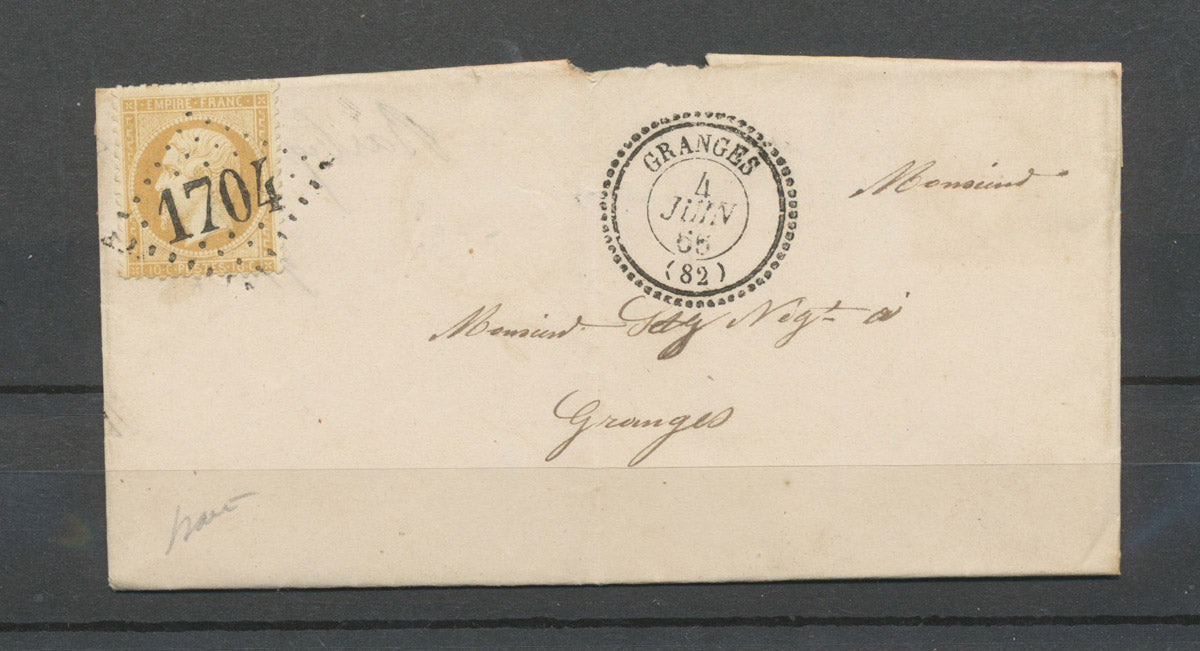 EMPIRE FRANC
1704
10 C POSTES 10 C
GRANGES
4
JUIN
66
(82)
Monsieur
Monsieur Négt à
Granges